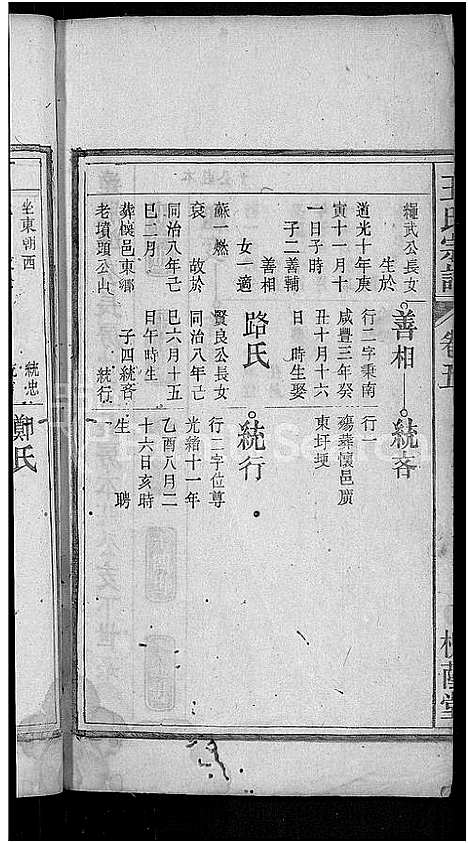 王氏宗譜 卷五
繩武公長女
生於
道光十年庚
寅十一月十
一日子時
子二善輔
善相
女一適
蘇一燃
故於
同治八年己
巳二月
葬懷邑東鄉
老墳頭公山
善相
行二字秉南
咸豐三年癸
丑十月十六
日 時生娶
路氏
賢良公長女
同治八年己
巳六月十五
日午時生
子四統吝
統行
統吝
行一
殤葬懷邑廣
東圩埂
統行
行二字位尊
光緒十一年
乙酉八月二
十六日亥時
生 聘
坐東朝西
統忠
鄭氏